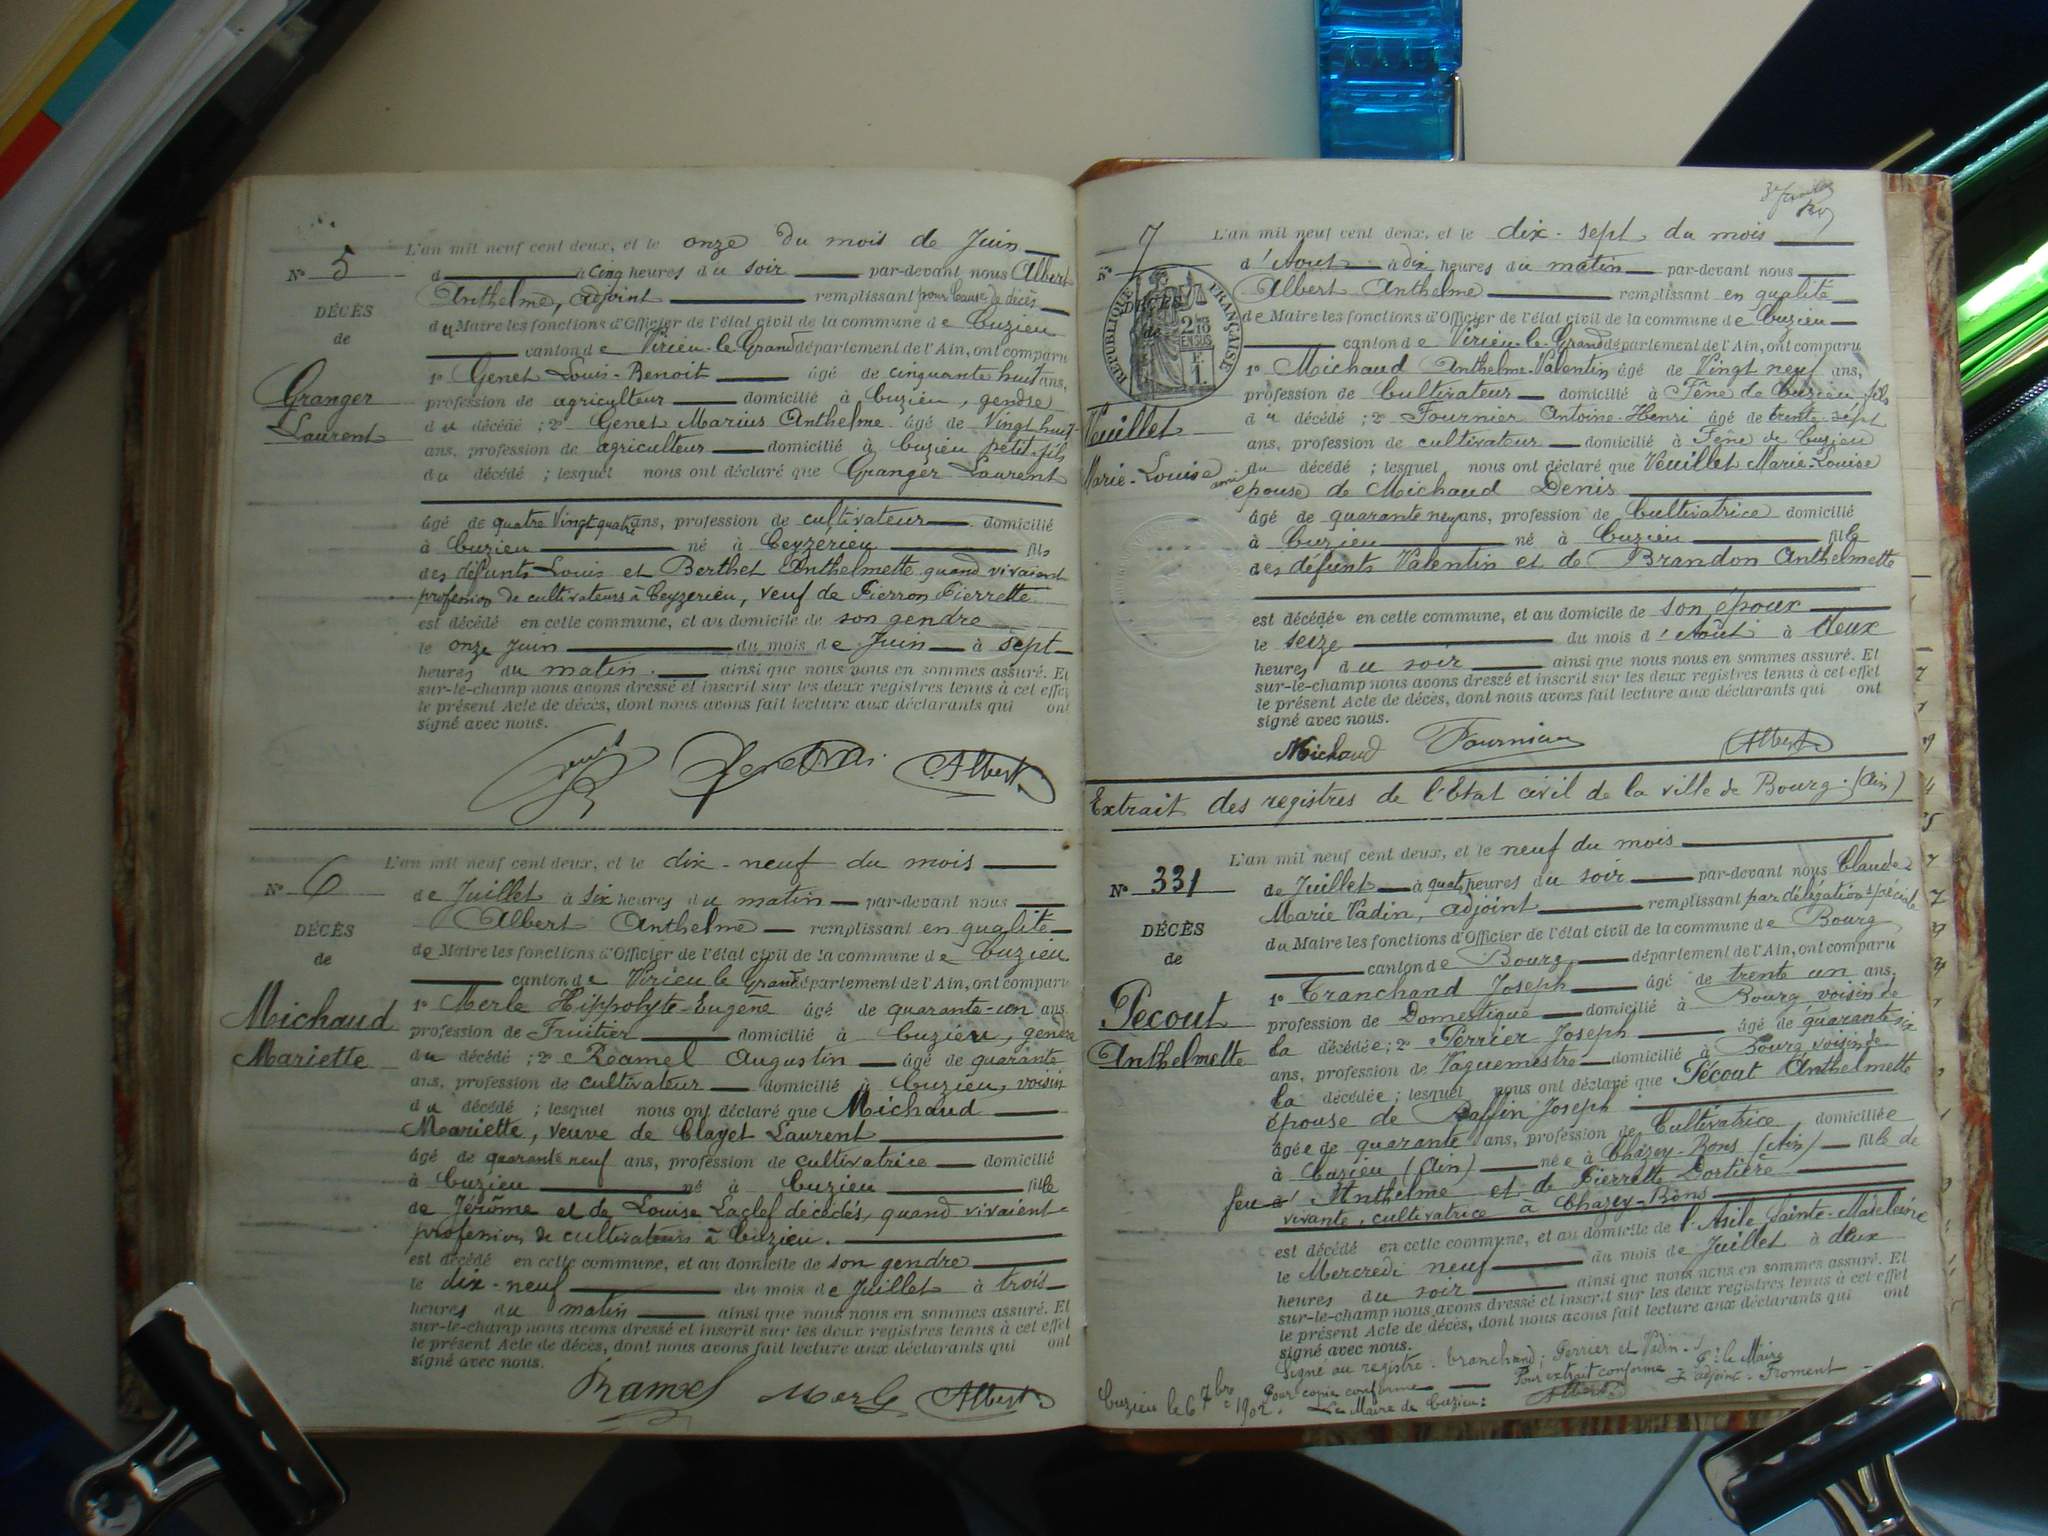 L'an mil neuf cent deux, et le onze du mois de Juin
N° 5
d à cinq heures du soir par-devant nous Albert
Anthelme, adjoint remplissant pour cause de décès
DÉCÈS
du Maire les fonctions d'Officier de l'état civil de la commune de Cuzieu
de
canton de Virieu-le-Grand département de l'Ain, ont comparu
1° Genet Louis-Benoit âgé de cinquante huit ans,
Granger
Laurent
profession de agriculteur domicilié à Cuzieu, gendre
du décédé ; 2° Genet Marius Anthelme âgé de Vingt huit
ans, profession de agriculteur domicilié à Cuzieu petit-fils
du décédé ; lesquel nous ont déclaré que Granger Laurent
âgé de quatre Vingt quatre ans, profession de cultivateur domicilié
à Cuzieu né à Ceyzerieu fils
des défunts Louis et Berthet Anthelmette quand vivaient
profession de cultivateurs à Ceyzerieu, veuf de Pierron Pierrette
est décédé en cette commune, et au domicile de son gendre
le onze Juin du mois de Juin à sept
heures du matin. ainsi que nous nous en sommes assuré. Et
sur-le-champ nous avons dressé et inscrit sur les deux registres tenus à cet effet
le présent Acte de décès, dont nous avons fait lecture aux déclarants qui ont
signé avec nous.
Albert
L'an mil neuf cent deux, et le dix-neuf du mois
N° 6
de Juillet à six heures du matin par-devant nous
Albert Anthelme remplissant en qualité
DÉCÈS
de Maire les fonctions d'Officier de l'état civil de la commune de Cuzieu
de
canton de Virieu le Grand département de l'Ain, ont comparu
Michaud
Mariette
1° Merle Hippolyte-Eugène âgé de quarante-un ans
profession de Fruitier domicilié à Cuzieu, gendre
du décédé ; 2° Ramel Augustin âgé de quarante
ans, profession de cultivateur domicilié à Cuzieu, voisin
du décédé ; lesquel nous ont déclaré que Michaud
Mariette, veuve de Clayet Laurent
âgé de quarante neuf ans, profession de cultivatrice domicilié
à Cuzieu né à Cuzieu fille
de Jérôme et de Louise Laclef décédés, quand vivaient
profession de cultivateurs à Cuzieu.
est décédé en cette commune, et au domicile de son gendre
le dix-neuf du mois de Juillet à trois
heures du matin ainsi que nous nous en sommes assuré. Et
sur-le-champ nous avons dressé et inscrit sur les deux registres tenus à cet effet
le présent Acte de décès, dont nous avons fait lecture aux déclarants qui ont
signé avec nous.
Ramel Merle Albert
L'an mil neuf cent deux, et le dix-sept du mois
N° 7
d'Aout à dix heures du matin par-devant nous
Albert Anthelme remplissant en qualité
DÉCÈS
de
RÉPUBLIQUE FRANÇAISE
de Maire les fonctions d'Officier de l'état civil de la commune de Cuzieu
canton de Virieu-le-Grand département de l'Ain, ont comparu
1° Michaud Anthelme-Valentin âgé de Vingt neuf ans,
profession de Cultivateur domicilié à Fène de Cuzieu fils
Veuillet
Marie-Louise
du décédé ; 2° Fournier Antoine-Henri âgé de trente sept
ans, profession de cultivateur domicilié à Fène de Cuzieu
ami du décédé ; lesquel nous ont déclaré que Veuillet Marie-Louise
épouse de Michaud Denis
âgé de quarante neuf ans, profession de Cultivatrice domicilié
à Cuzieu né à Cuzieu fille
des défunts Valentin et de Brandon Anthelmette
est décédée en cette commune, et au domicile de son époux
le seize du mois d'Août à deux
heures du soir ainsi que nous nous en sommes assuré. Et
sur-le-champ nous avons dressé et inscrit sur les deux registres tenus à cet effet
le présent Acte de décès, dont nous avons fait lecture aux déclarants qui ont
signé avec nous.
Michaud Fournier Albert
Extrait des registres de l'Etat civil de la ville de Bourg. (Ain)
L'an mil neuf cent deux, et le neuf du mois
N° 331
de Juillet à quatre heures du soir par-devant nous Claude
Marie Vadin, adjoint remplissant par délégation spéciale
DÉCÈS
du Maire les fonctions d'Officier de l'état civil de la commune de Bourg
de
canton de Bourg département de l'Ain, ont comparu
Pecout
Anthelmette
1° Tranchand Joseph âgé de trente un ans
profession de Domestique domicilié à Bourg voisin de
la décédée ; 2° Perrier Joseph âgé de quarante six
ans, profession de Vaguemestre domicilié à Bourg voisin de
la décédée ; lesquel nous ont déclaré que Pécout Anthelmette
épouse de Raffin Joseph
âgée de quarante ans, profession de Cultivatrice domiciliée
à Cuzieu (Ain) née à Chazey-Bons (Ain) fille de
feu Anthelme et de Pierrette Dortière
vivante, cultivatrice à Chazey-Bons
est décédé en cette commune, et au domicile de l'Asile Sainte-Madeleine
le Mercredi neuf du mois de Juillet à deux
heures du soir ainsi que nous nous en sommes assuré. Et
sur-le-champ nous avons dressé et inscrit sur les deux registres tenus à cet effet
le présent Acte de décès, dont nous avons fait lecture aux déclarants qui ont
signé avec nous.
Signé au registre : Tranchand ; Perrier et Vadin
Pour extrait conforme Pr le Maire
adjoint - Froment
Pour copie conforme
Cuzieu le 6 7bre 1902. Le Maire de Cuzieu :
Albert